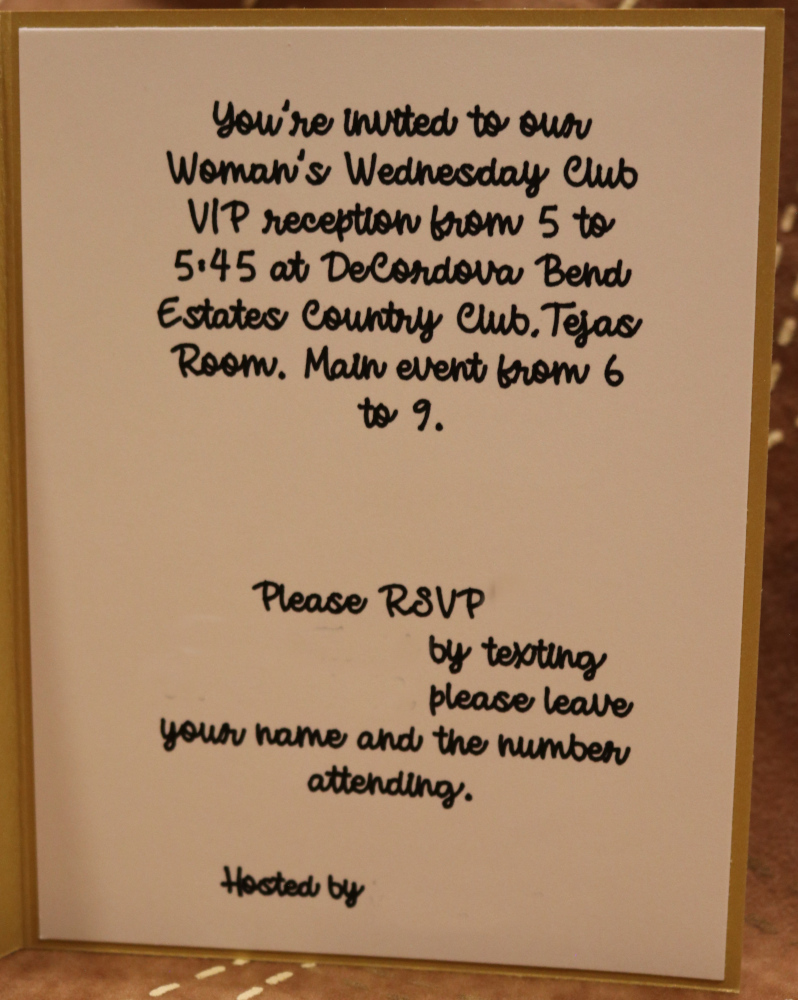 You're invited to our
Woman's Wednesday Club
VIP reception from 5 to
5:45 at DeCordova Bend
Estates Country Club. Tejas
Room. Main event from 6
to 9.
Please RSVP
by texting
please leave
your name and the number
attending.
Hosted by